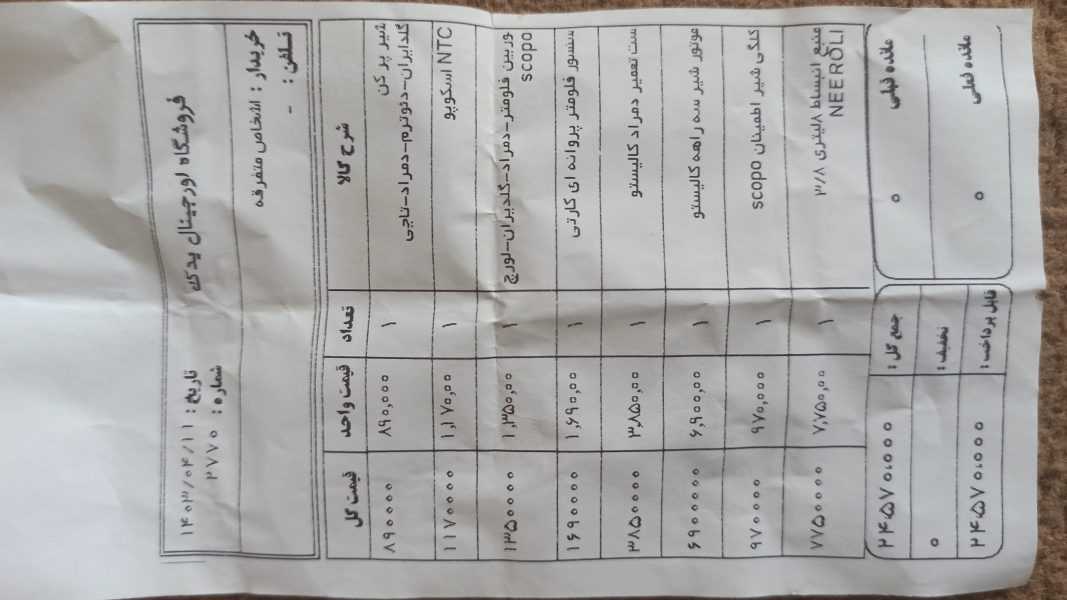 فروشگاه اورجینال یدک
تاریخ : ۱۴۰۳/۰۴/۱۱
شماره : ۲۷۷۰
خریدار : اشخاص متفرقه
تلفن : -
شرح کالا تعداد قیمت واحد قیمت کل
شیر پر کن گلدایران-دئوترم-دمراد-تاچی ۱ ۸۹۰,۰۰۰ ۸۹۰۰۰۰
NTC اسکوپو ۱ ۱,۱۷۰,۰۰ ۱۱۷۰۰۰۰
وربین فلومتر-دمراد-گلدیران-لورچ scopo ۱ ۱,۳۵۰,۰۰ ۱۳۵۰۰۰۰
سنسور فلومتر پروانه ای کارتی ۱ ۱,۶۹۰,۰۰ ۱۶۹۰۰۰۰
ست تعمیر دمراد کالیستو ۱ ۳,۸۵۰,۰۰ ۳۸۵۰۰۰۰
موتور شیر سه راهه کالیستو ۱ ۶,۹۰۰,۰۰ ۶۹۰۰۰۰۰
کلگی شیر اطمینان scopo ۱ ۹۷۰,۰۰۰ ۹۷۰۰۰۰
منبع انبساط ۸لیتری ۳/۸ NEEROLI ۱ ۷,۷۵۰,۰۰ ۷۷۵۰۰۰۰
مانده قبلی ۰ جمع کل : ۲۴۵۷۰۰۰۰
تخفیف : ۰
مانده فعلی ۰ قابل پرداخت : ۲۴۵۷۰۰۰۰